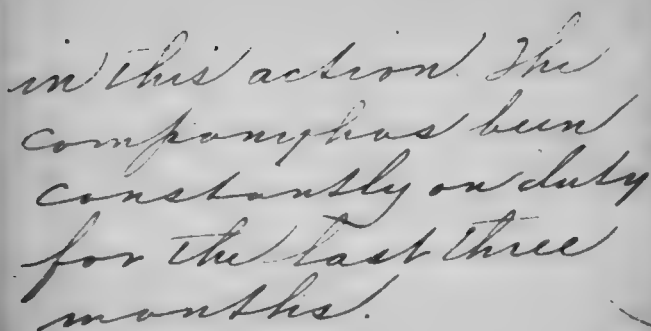 in this action. The
company has been
constantly on duty
for the last three
months.